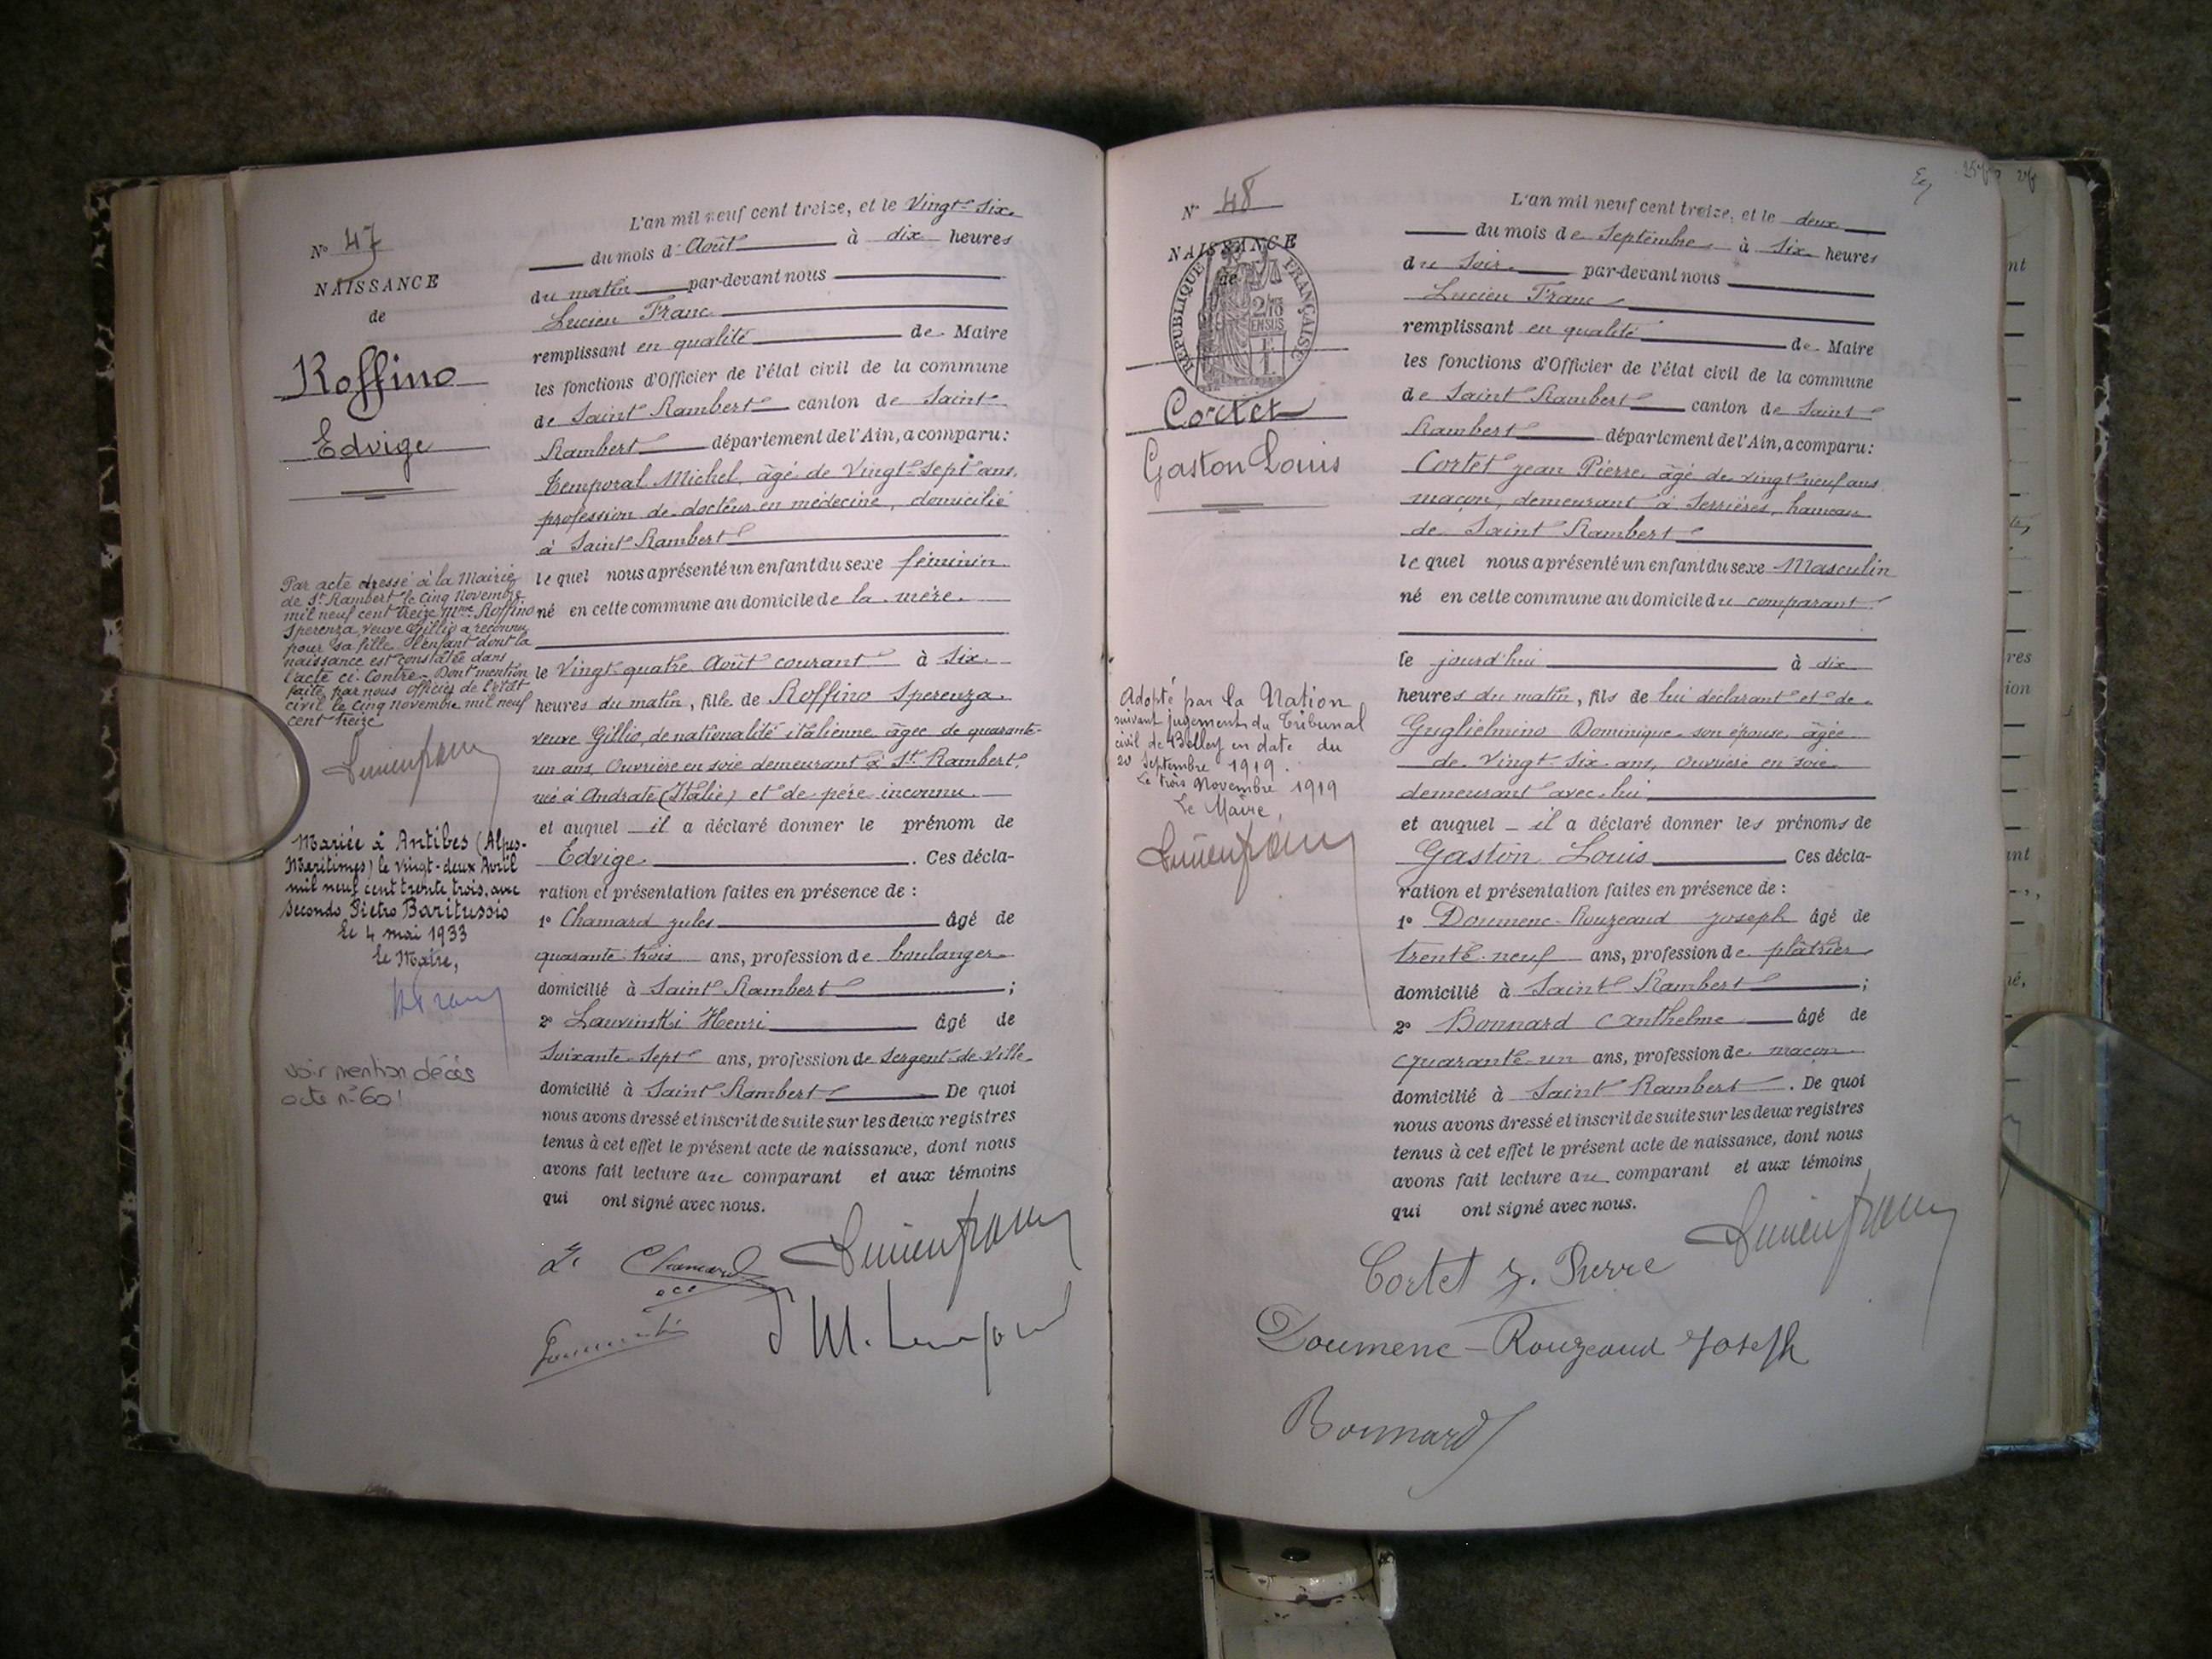 N° 47
NAISSANCE
de
Roffino
Edvige
Par acte dressé à la Mairie
de St Rambert le cinq Novembre
mil neuf cent treize Mme Roffino
Sperenza, veuve Gillio a reconnu
pour sa fille l'enfant dont la
naissance est constatée dans
l'acte ci-contre. Dont mention
faite par nous officier de l'état
civil le cinq novembre mil neuf
cent treize
Lucien Franc
Mariée à Antibes (Alpes-
Maritimes) le vingt-deux Avril
mil neuf cent trente trois, avec
Secondo Pietro Baritussio
le 4 mai 1933
Le Maire,
voir mention décès
acte n° 60!
L'an mil neuf cent treize, et le Vingt-six
du mois d'Août à dix heures
du matin par-devant nous
Lucien Franc
remplissant en qualité de Maire
les fonctions d'Officier de l'état civil de la commune
de Saint Rambert canton de Saint
Rambert département de l'Ain, a comparu :
Temporal Michel, âgé de Vingt-sept ans,
profession de docteur en médecine, domicilié
à Saint Rambert
lequel nous a présenté un enfant du sexe féminin
né en cette commune au domicile de la mère
le Vingt-quatre Août courant à six
heures du matin, fille de Roffino Sperenza,
veuve Gillio, de nationalité italienne âgée de quarante-
un ans, Ouvrière en soie demeurant à St Rambert,
née à Andrate (Italie) et de père inconnu
et auquel il a déclaré donner le prénom de
Edvige. Ces décla-
ration et présentation faites en présence de :
1° Chamard Jules âgé de
quarante-trois ans, profession de boulanger
domicilié à Saint Rambert ;
2° Lauvinski Henri âgé de
Soixante-sept ans, profession de Sergent de Ville
domicilié à Saint Rambert De quoi
nous avons dressé et inscrit de suite sur les deux registres
tenus à cet effet le présent acte de naissance, dont nous
avons fait lecture au comparant et aux témoins
qui ont signé avec nous.
Chamard Lucien Franc
N° 48
NAISSANCE
de
RÉPUBLIQUE FRANÇAISE
2/10
EN SUS
Cortet
Gaston Louis
Adopté par la Nation
suivant jugement du Tribunal
civil de Belley en date du
20 Septembre 1919.
Le trois Novembre 1919
Le Maire,
Lucien Franc
L'an mil neuf cent treize, et le deux
du mois de Septembre à six heures
du Soir par-devant nous
Lucien Franc
remplissant en qualité de Maire
les fonctions d'Officier de l'état civil de la commune
de Saint Rambert canton de Saint
Rambert département de l'Ain, a comparu :
Cortet Jean Pierre, âgé de vingt neuf ans
maçon, demeurant à Serrières, hameau
de Saint Rambert
lequel nous a présenté un enfant du sexe Masculin
né en cette commune au domicile du comparant
le jourd'hui à dix
heures du matin, fils de lui déclarant et de
Guglielmino Dominique son épouse, âgée
de Vingt six ans, Ouvrière en soie
demeurant avec lui
et auquel il a déclaré donner les prénoms de
Gaston Louis Ces décla-
ration et présentation faites en présence de :
1° Doumenc-Rouzeaud Joseph âgé de
trente-neuf ans, profession de plâtrier
domicilié à Saint Rambert ;
2° Bonnard Anthelme âgé de
Quarante-un ans, profession de maçon
domicilié à Saint Rambert. De quoi
nous avons dressé et inscrit de suite sur les deux registres
tenus à cet effet le présent acte de naissance, dont nous
avons fait lecture au comparant et aux témoins
qui ont signé avec nous.
Lucien Franc
Cortet J. Pierre
Doumenc-Rouzeaud Joseph
Bonnard